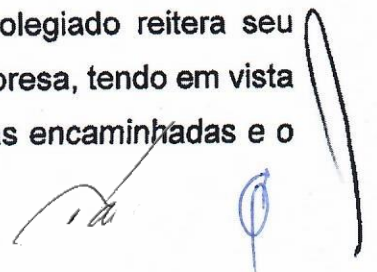 olegiado reitera seu
resa, tendo em vista
as encaminhadas e o